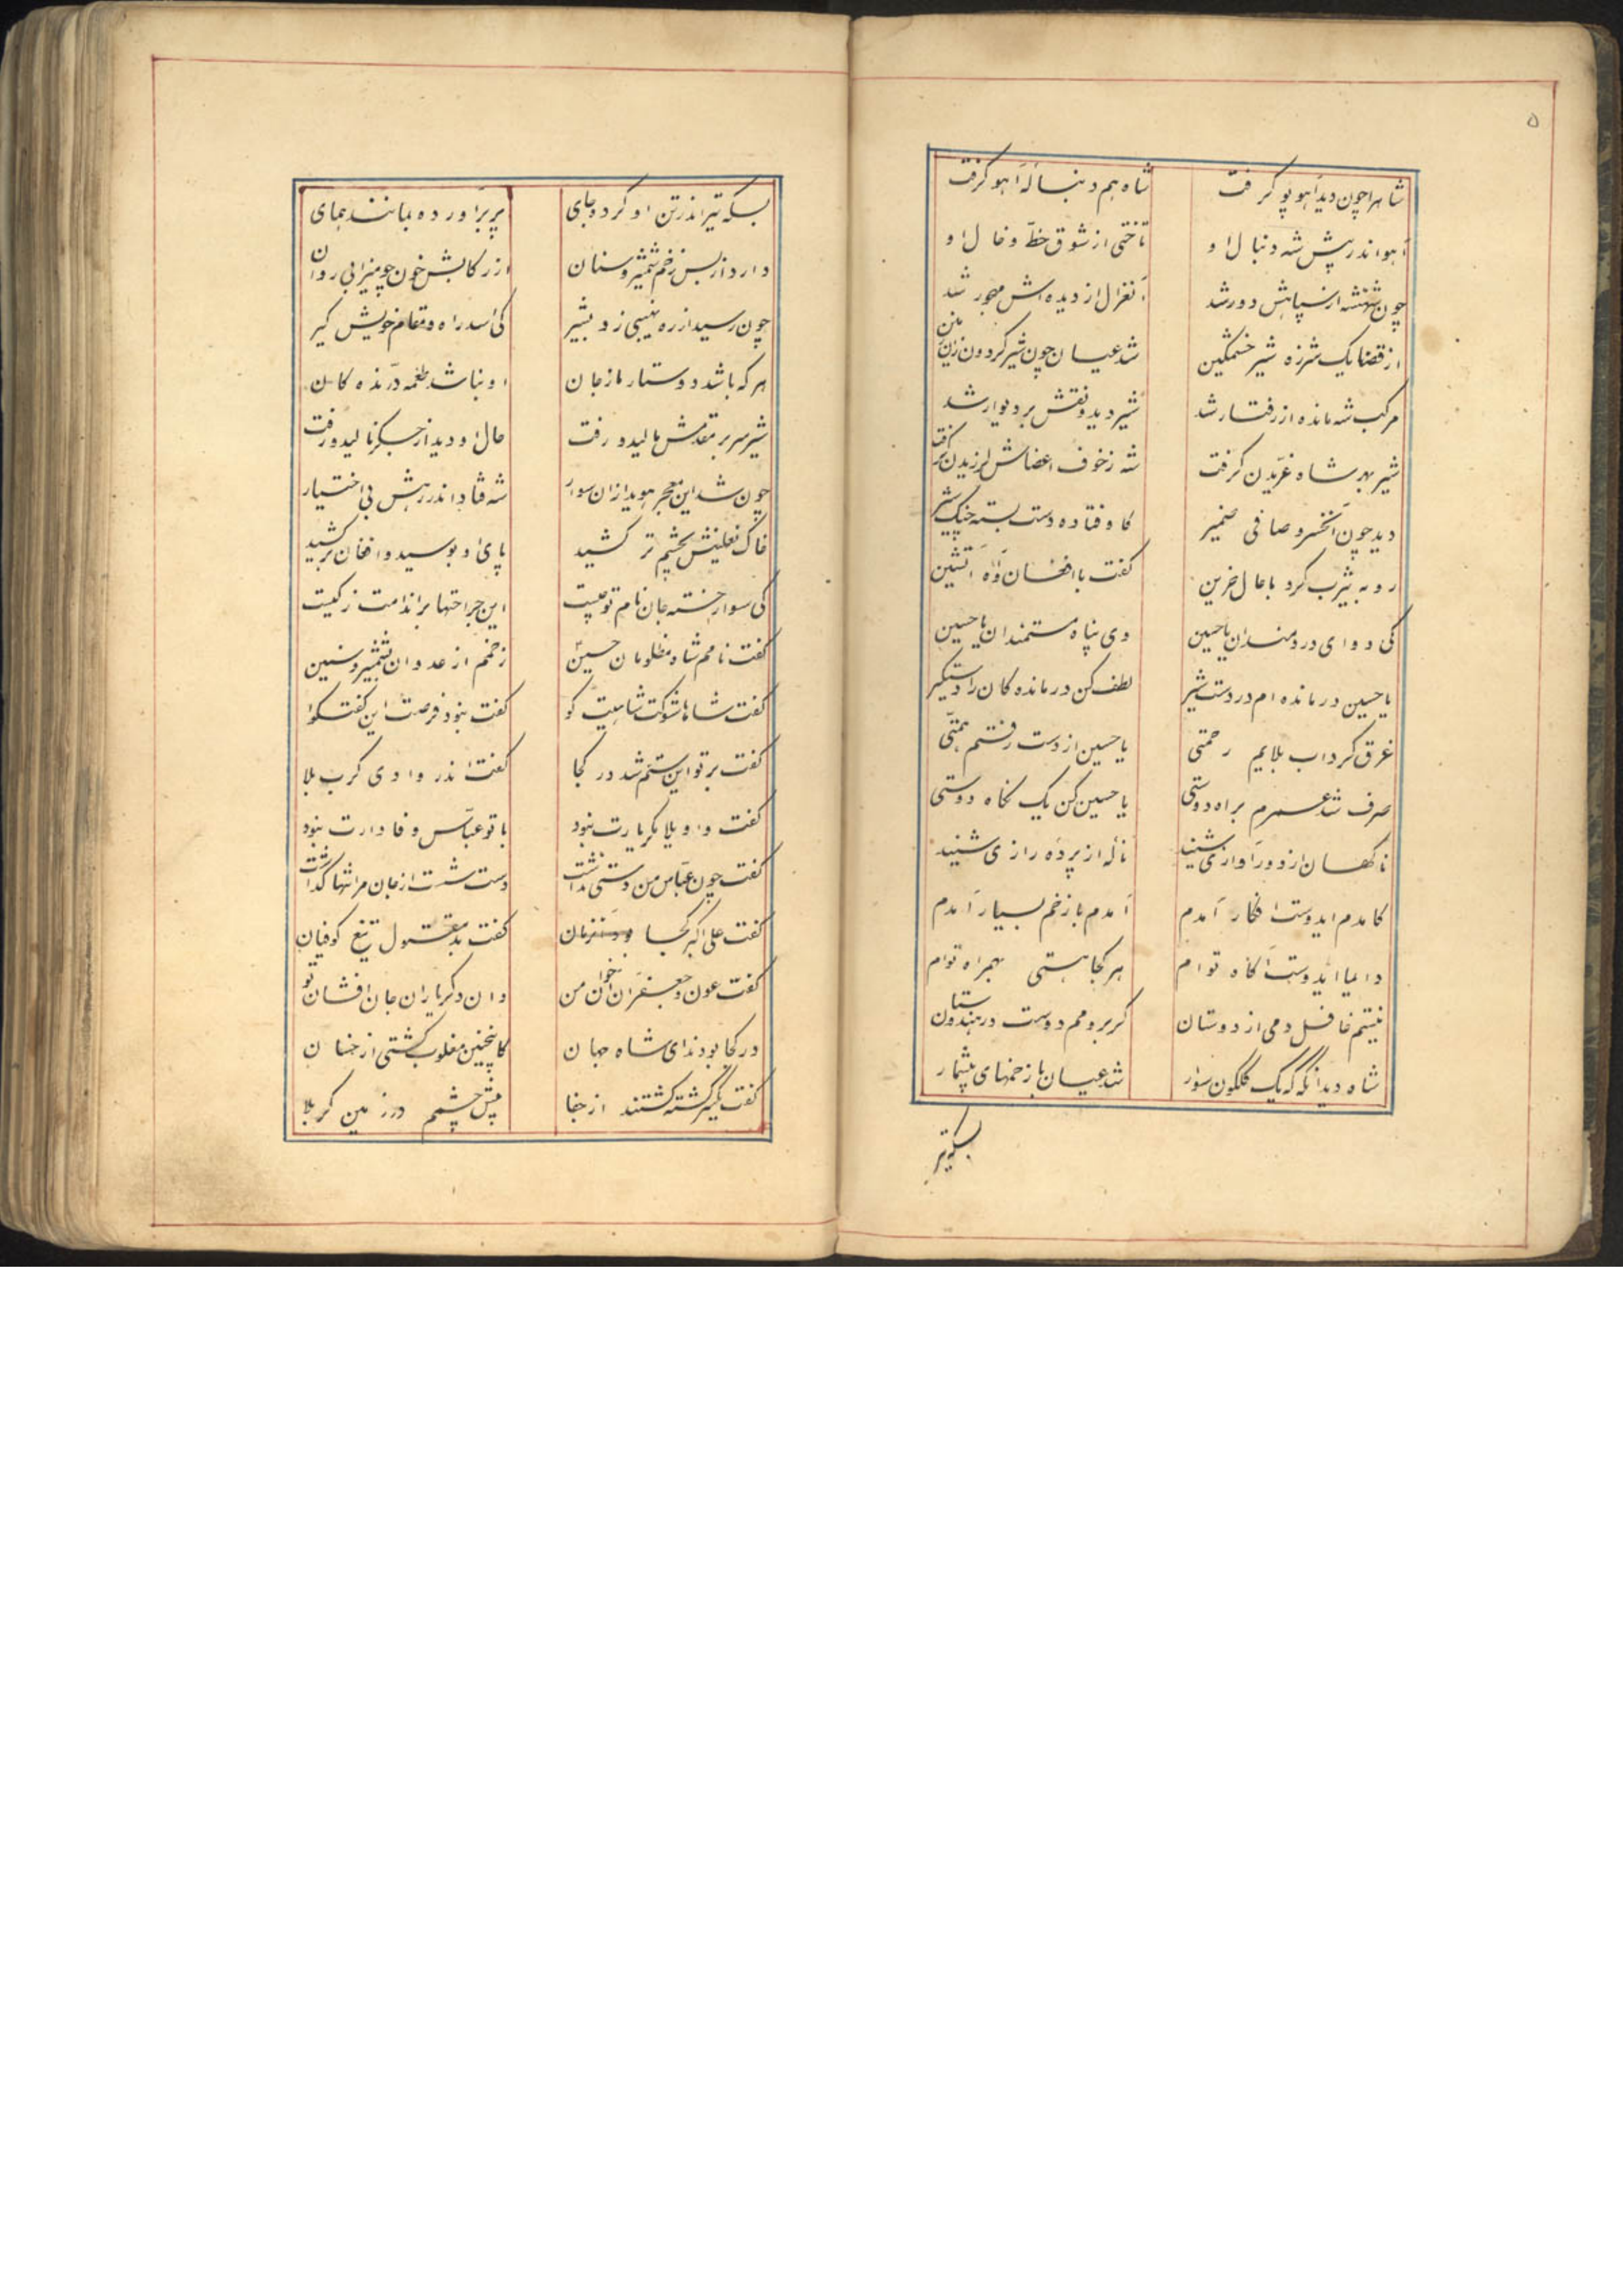 ۵
شاهرا چون دید آهو پو گرفت شاه هم دنبالهٔ آهو گرفت
آهو اندر پیش شه دنبال او تاختی از شوق خط و خال او
چون شهنشه از سپاهش دور شد آنغزال از دیده اش مهجور شد
از قضا یک شرزه شیر خشمگین شد عیان چون شیر گردون
مرکب شه مانده از رفتار شد شیر دید و نقش بر دیوار شد
شیر بهر شاه غریدن گرفت شه ز خوف اعضاش لرزیدن گرفت
دید چون آنخسرو صافی ضمیر کاوفتاده دست بسته چنگ شیر
رو به یثرب کرد با حال حزین گفت با افغان و آه آتشین
کی دوای دردمندان یا حسین وی پناه مستمندان یا حسین
یا حسین درمانده ام در دست شیر لطف کن درمانده کان را دستگیر
غرق گرداب بلایم رحمتی یا حسین از دست رفتم همتی
صرف شد عمرم براه دوستی یا حسین کن یک نگاه دوستی
ناگهان از دور آوازی شنید ناله از پرده رازی شنید
کامدم ایدوست افکار آمدم آمدم با زخم بسیار آمدم
دایما ایدوست آگاه توام هر کجا هستی بهمراه توام
نیستم غافل دمی از دوستان گر برو هم دوست در هندوستان
شاه دید آنگه که یک گلگون سوار شد عیان با زخمهای بیشمار
بسکه تیر
بسکه تیر اندر تن او کرده جای پر برآورده بمانند همای
دارد از بس زخم شمشیر و سنان از رکابش خون چو میزابی روان
چون رسید از ره نهیبی زد بشیر کی اسد راه مقام خویش گیر
هر که باشد دوستار ما ز جان او نباشد طعمه درنده کان
شیر سر بر مقدمش مالید و رفت حال او دید از جگر نالید و رفت
چون شد این معجز هویدا زان سوار شه فتاد اندر رهش بی اختیار
خاک نعلینش بچشم تر کشید پای او بوسید و افغان بر کشید
کی سوار خسته جان نام تو چیست این جراحتها بر اندامت ز کیست
گفت نامم شاه مظلومان حسین زخمم از عدوان شمشیر و سنین
گفت شاها شوکت شاهیت کو گفت نبود فرصت این گفتگو
گفت بر تو این ستم شد در کجا گفت اندر وادی کرب بلا
گفت واویلا مگر یارت نبود با تو عباس وفادارت نبود
گفت چون عباس من دستی نداشت دست شست از جان مرا تنها گذاشت
گفت علی اکبر کجا گفت بد مقتول تیغ کوفیان
گفت عون و جعفر آن اخوان من وان دگر یاران جان افشان تو
در کجا بودند ای شاه جهان کاینچنین مغلوب گشتی از خسان
گفت یکسر گشته کشتند از جفا پیش چشمم در زمین کربلا